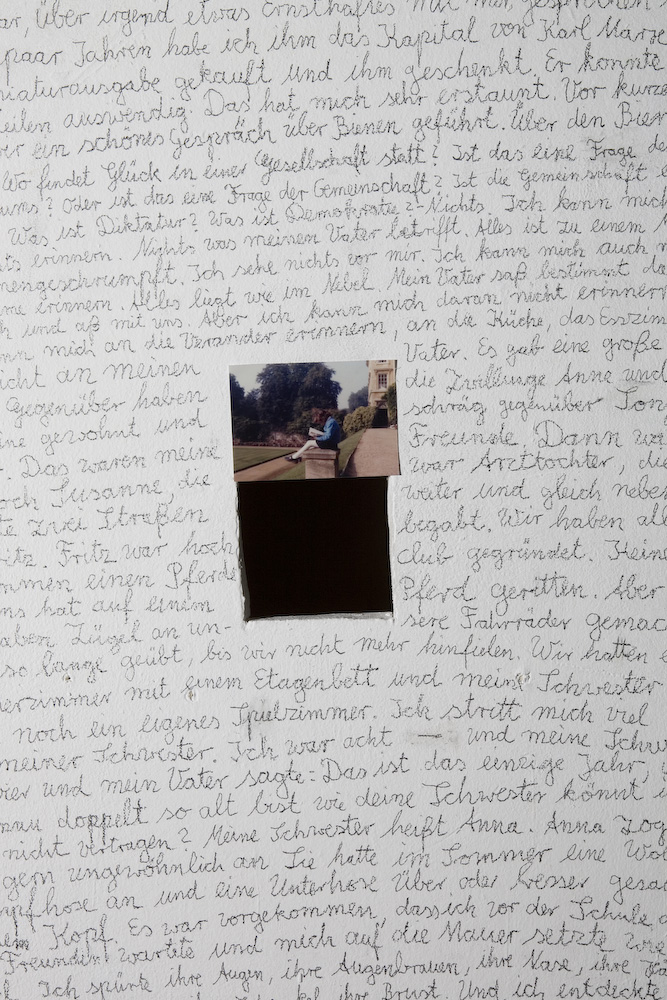 über irgend etwas Ernsthaftes mit mir gesprochen
paar Jahren habe ich ihm das Kapital von Karl Marx
niaturausgabe gekauft und ihm geschenkt. Er konnte
eilen auswendig. Das hat mich sehr erstaunt. Vor kurze
ein schönes Gespräch über Bienen geführt. Über den Bien
Wo findet Glück in einer Gesellschaft statt? Ist das eine Frage de
ums? Oder ist das eine Frage der Gemeinschaft? Ist die Gemeinschaft
Was ist Diktatur? Was ist Demokratie? - Nichts. Ich kann mich
ts erinnern. Nichts was meinen Vater betrifft. Alles ist zu einem
mengeschrumpft. Ich sehe nichts vor mir. Ich kann mich auch
me erinnern. Alles liegt wie im Nebel. Mein Vater saß bestimmt da
h und aß mit uns. Aber ich kann mich daran nicht erinnern
nn mich an die Veranda erinnern, an die Küche, das Esszim
icht an meinen Vater. Es gab eine große
Gegenüber haben die Zwillinge Anna und
ne gewohnt und schräg gegenüber
Das waren meine Freunde. Dann wa
och Susanne, die war Arzttochter, die
te zwei Straßen weiter und gleich nebe
itz. Fritz war hoch begabt. Wir haben al
mmen einen Pferde club gegründet. Keine
ns hat auf einem Pferd geritten. Aber
aben Zügel an un- sere Fahrräder gemac
so lange geübt, bis wir nicht mehr hinfielen. Wir hatten
erzimmer mit einem Etagenbett und meine Schwester
noch ein eigenes Spielzimmer. Ich stritt mich viel
meiner Schwester. Ich war acht — und meine Schw
vier und mein Vater sagte: Das ist das einzige Jahr,
nau doppelt so alt bist wie deine Schwester könnt
nicht vertragen? Meine Schwester heißt Anna. Anna zog
gern ungewöhnlich an. Sie hatte im Sommer eine Wol
mpfhose an und eine Unterhose über, oder besser gesa
em Kopf. Es war vorgekommen, dass ich vor der Schule
Freundin wartete und mich auf die Mauer setzte
Ich spürte ihre Augen, ihre Augenbrauen, ihre Nase, ihre
ihre Brust. Und ich entdeckte